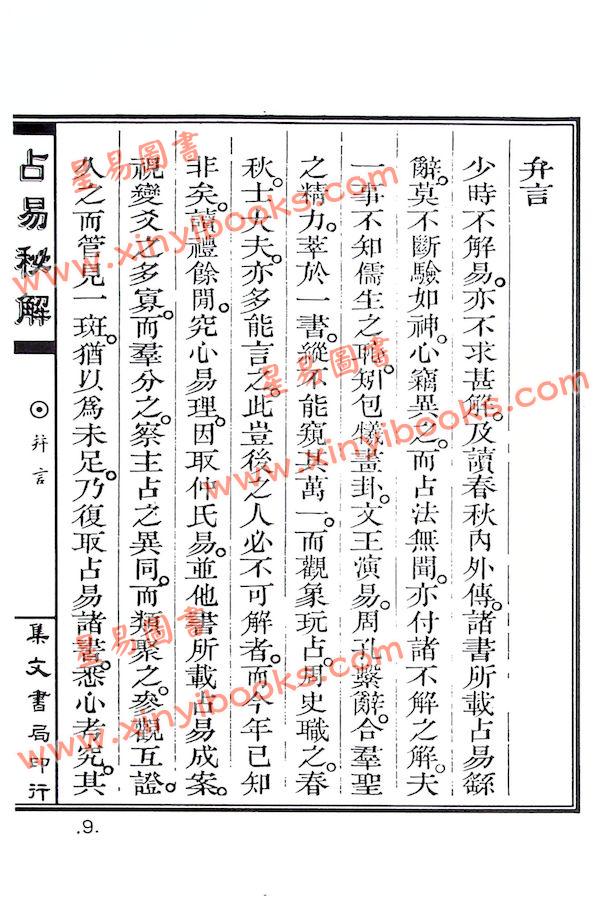 弁言
少時不解易。亦不求甚解。及讀春秋內外傳。諸書所載占易繇
辭。莫不斷驗如神。心竊異之。而占法無聞。亦付諸不解之解。夫
一事不知。儒生之恥。矧包犧畫卦。文王演易。周孔繫辭。合羣聖
之精力。萃於一書。縱不能窺其萬一。而觀象玩占。周史職之。春
秋士大夫。亦多能言之。此豈後之人必不可解者。而今年已知
非矣。讀禮餘閒。究心易理。因取仲氏易。並他書所載占易成案。
視變爻之多寡。而羣分之。察主占之異同。而類聚之。參觀互證。
久之而管見一斑。猶以為未足。乃復取占易諸書。悉心考究。其
占易秘解
弁言
集文書局印行
.9.
星易圖書
www.xinyibooks.com
星易圖書
www.xinyibooks.com
星易圖書
www.xinyibooks.com